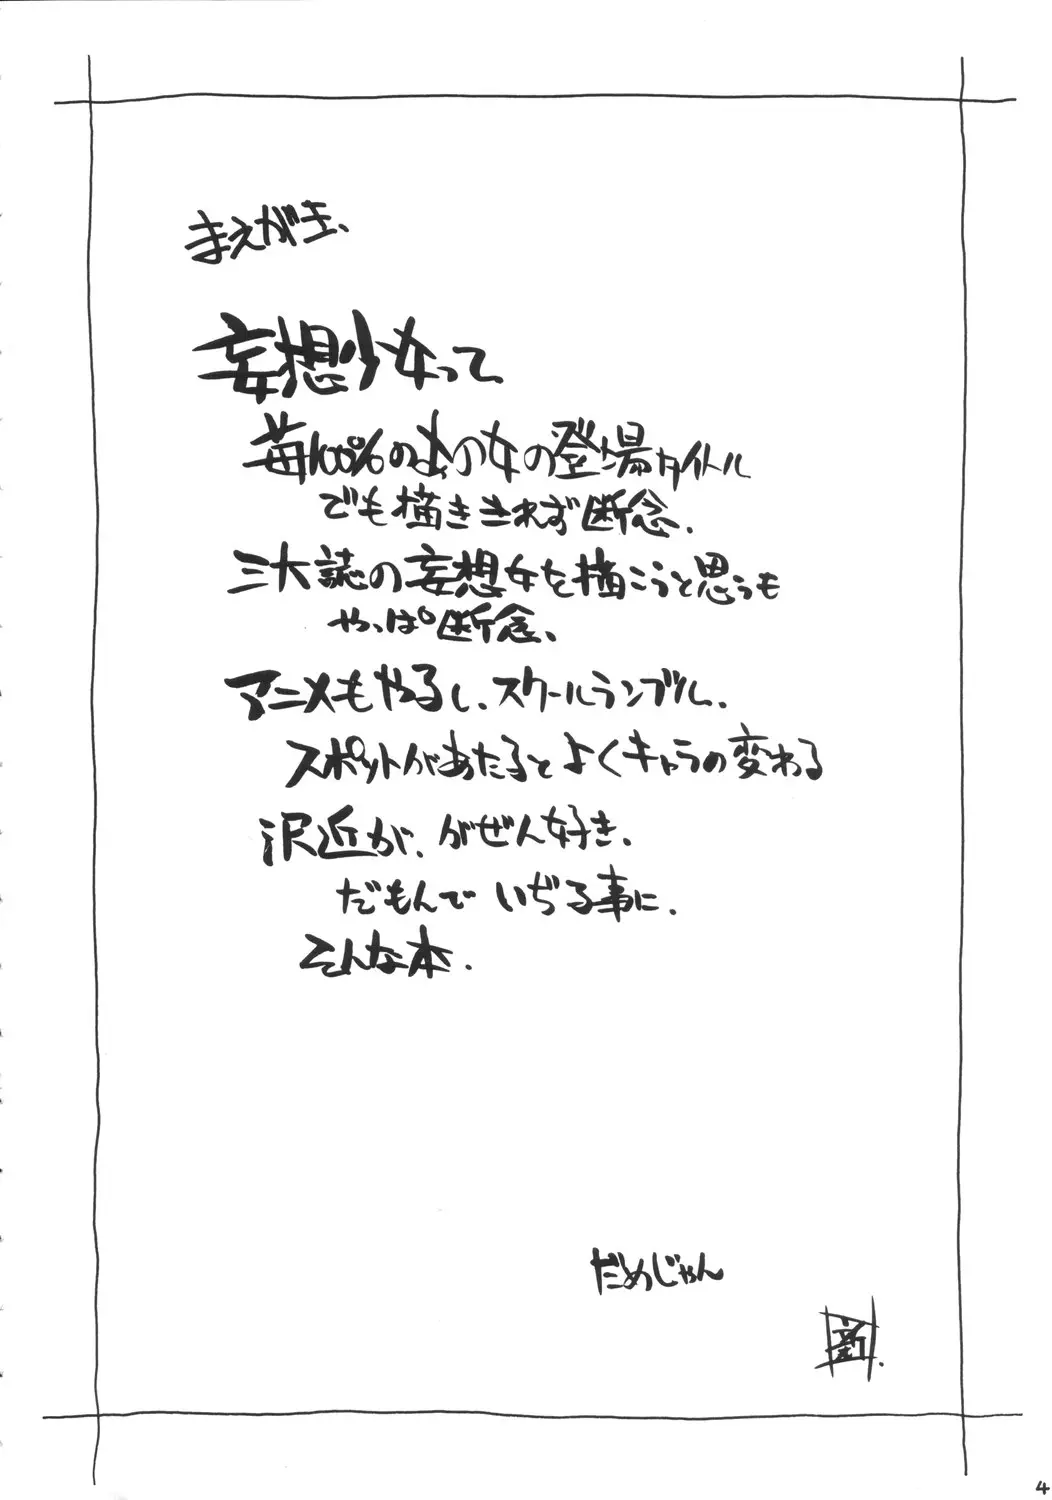 まえがき、
妄想少女って
苺100%のあの女の登場タイトル
でも描ききれず断念.
三大誌の妄想女を描こうと思うも
やっぱ断念、
アニメもやるし、スクールランブル.
スポットがあたるとよくキャラの変わる
沢近が、がぜん好き.
だもんでいぢる事に.
そんな本.
だめじゃん
新.
4